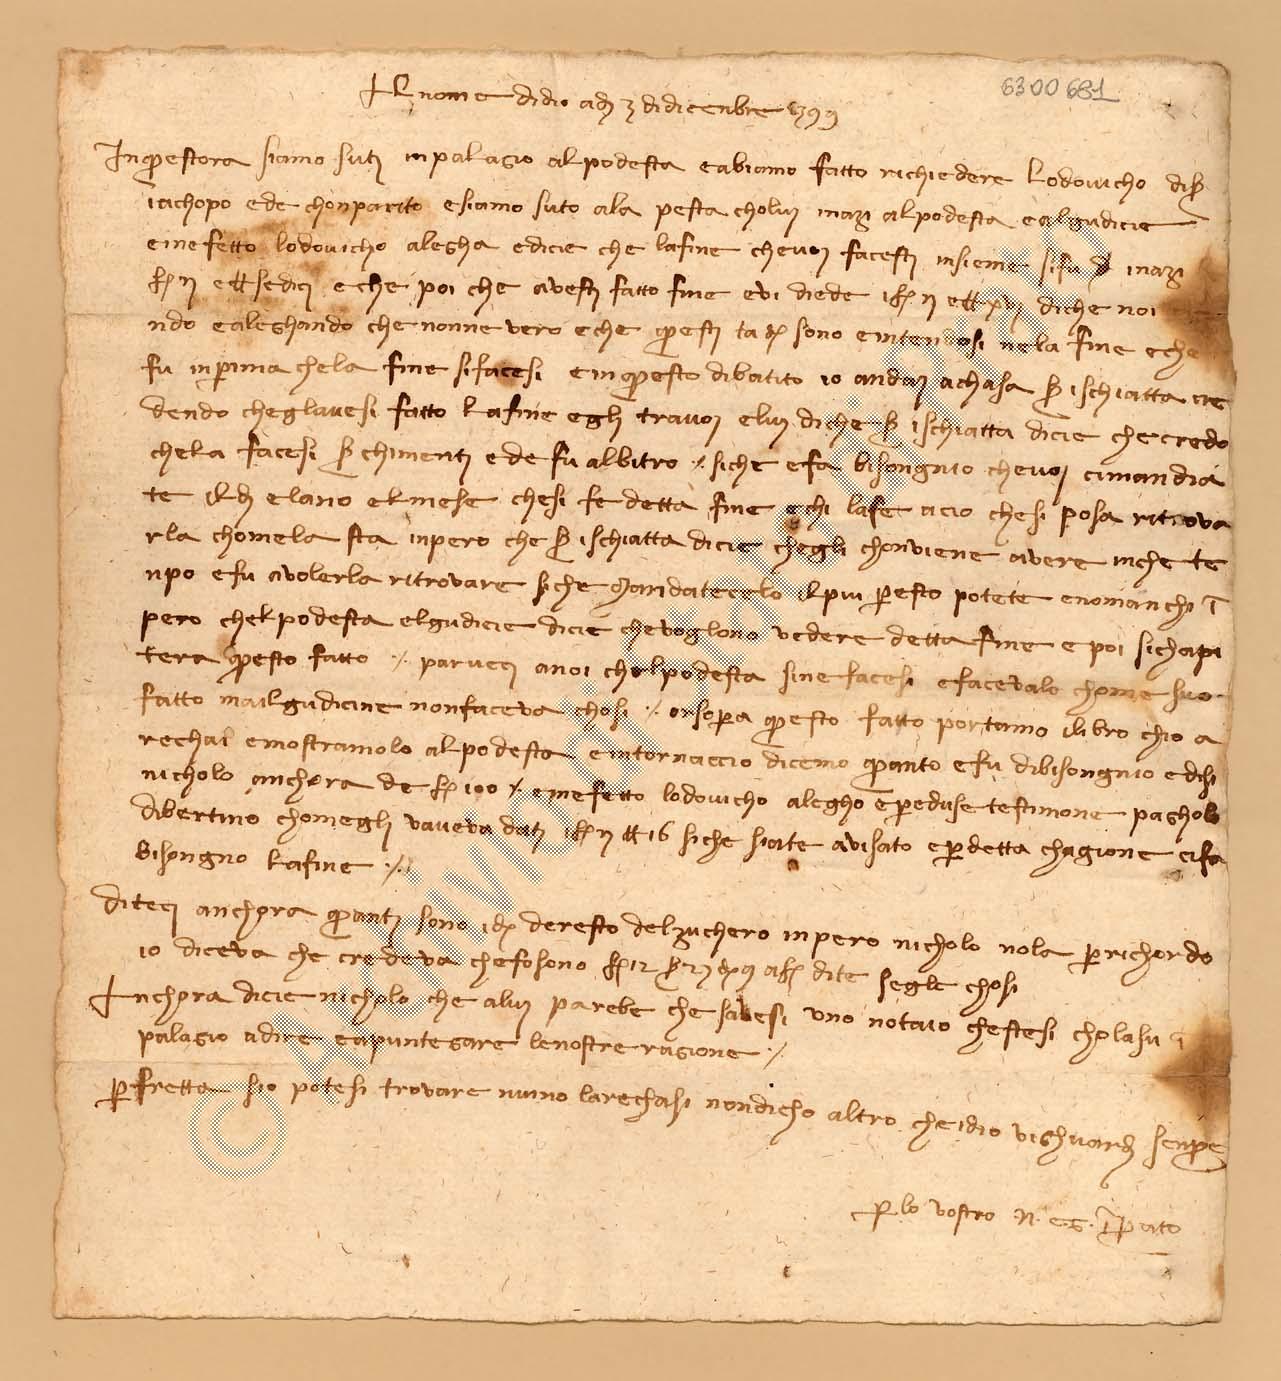 6300 681
Al nome di dio adj 3 di dicenbre 1399
In questora siamo suti in palagio al podesta e abiamo fatto richiedere Lodovicho di ser
iachopo ed e chonparito e siamo suto ala pesta cholui inazi al podesta e al gudicie
e in efetto lodovicho alegha e dicie che la fine che voi facesti insieme si fu inazi
f. II e ll. sedici e che poi che avesti fatto fine e vi diede i f. II e ll. XVI di che noi
ndo e aleghando che nonne vero e che questi ta d. sono e intendosi nela fine e che
fu in prima che la fine si facesi e in questo dibatito io andai a chasa ser ischiatta cre
dendo che gl avesi fatto la fine egli travoi e lui di che ser ischiatta dicie che credo
che la facesi ser chimenti ed e fu albitro ·/· siche e fa bisongnio che voi ci mandia
te il dj e l ano e l mese che si fe detta fine e chi la fe acio che si posa ritrova
rla chome la sta inpero che ser ischiatta dicie chegli chonviene avere in che te
npo e fu a volerla ritrovare siche mandatecelo il piu presto potete e no manchi in
pero che l podesta e l gudicie dicie che voglono vedere detta fine e poi si chapi
tera questo fatto ·/· parveci a noi che l podesta si ne facesi e facevalo chome suo
fatto ma il gudicie ne non faceva chosi ·/· or sopra questo fatto portamo i libro ch io a
rechai e mostramolo al podesta e intornaccio dicemo quanto e fu di bisongnio e disi
nicholo anchora de f. 100 ·/· e in efetto lodovicho alegho e per eduse testimone pagholo
di bertino chom egli v aveva dati i f. II ll. 16 siche siate avisato e per detta chagione ci fa
bisongno la fine ·/·
Diteci anchora quanti sono i d. de resto del zuchero inpero nicholo nol a per richordo
io diceva che credeva che fosono f. 12 s. 2 d. 9 a f. dite segl e chosi
Anchora dicie nicholo che a lui parebe che s avesi uno notaio che stesi cholasu in
palagio a dire e apuntegare le nostre ragione ·/·
Per fretta s io potesi trovare niuno la rechasi non dicho altro che idio vi ghuardj senpre
Per lo vostro N. e G. in Prato
© Archivio di Stato di Prato